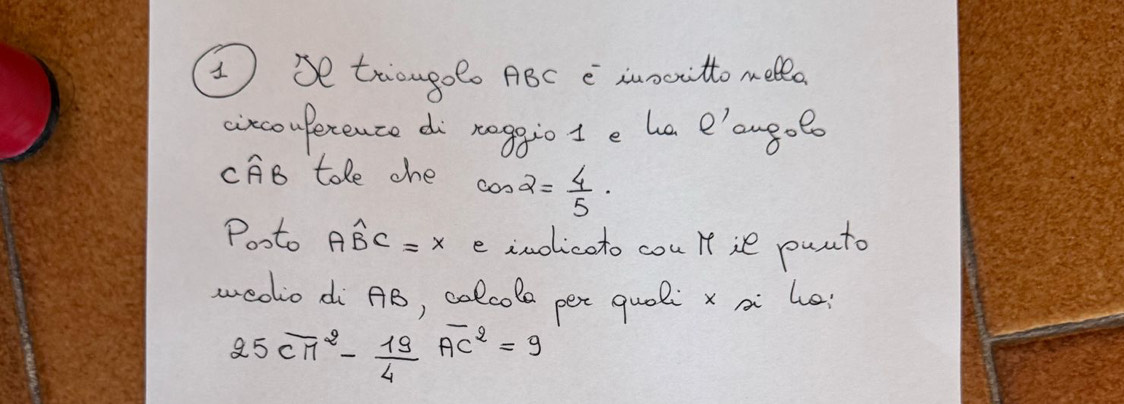 ① Il triangolo ABC è inscritto nella
circonferenza di raggio 1 e ha l'angolo
CÂB tale che cos α = 4/5.
Posto AB̂C = x e indicato con M il punto
medio di AB, calcola per quali x si ha:
25 C̅M̅² - 19/4 A̅C̅² = 9